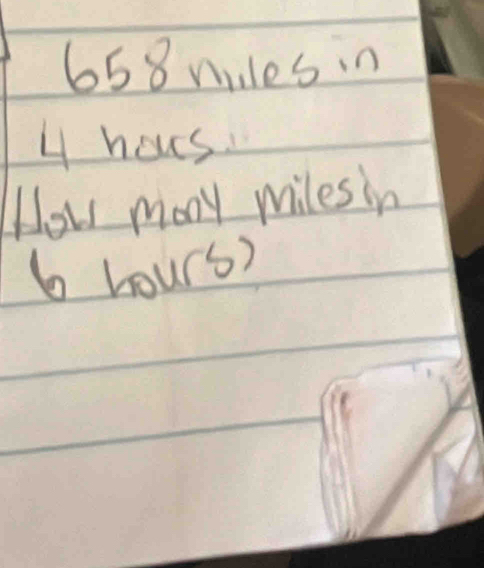 658 miles in
4 hours.
How many miles in
6 hours?